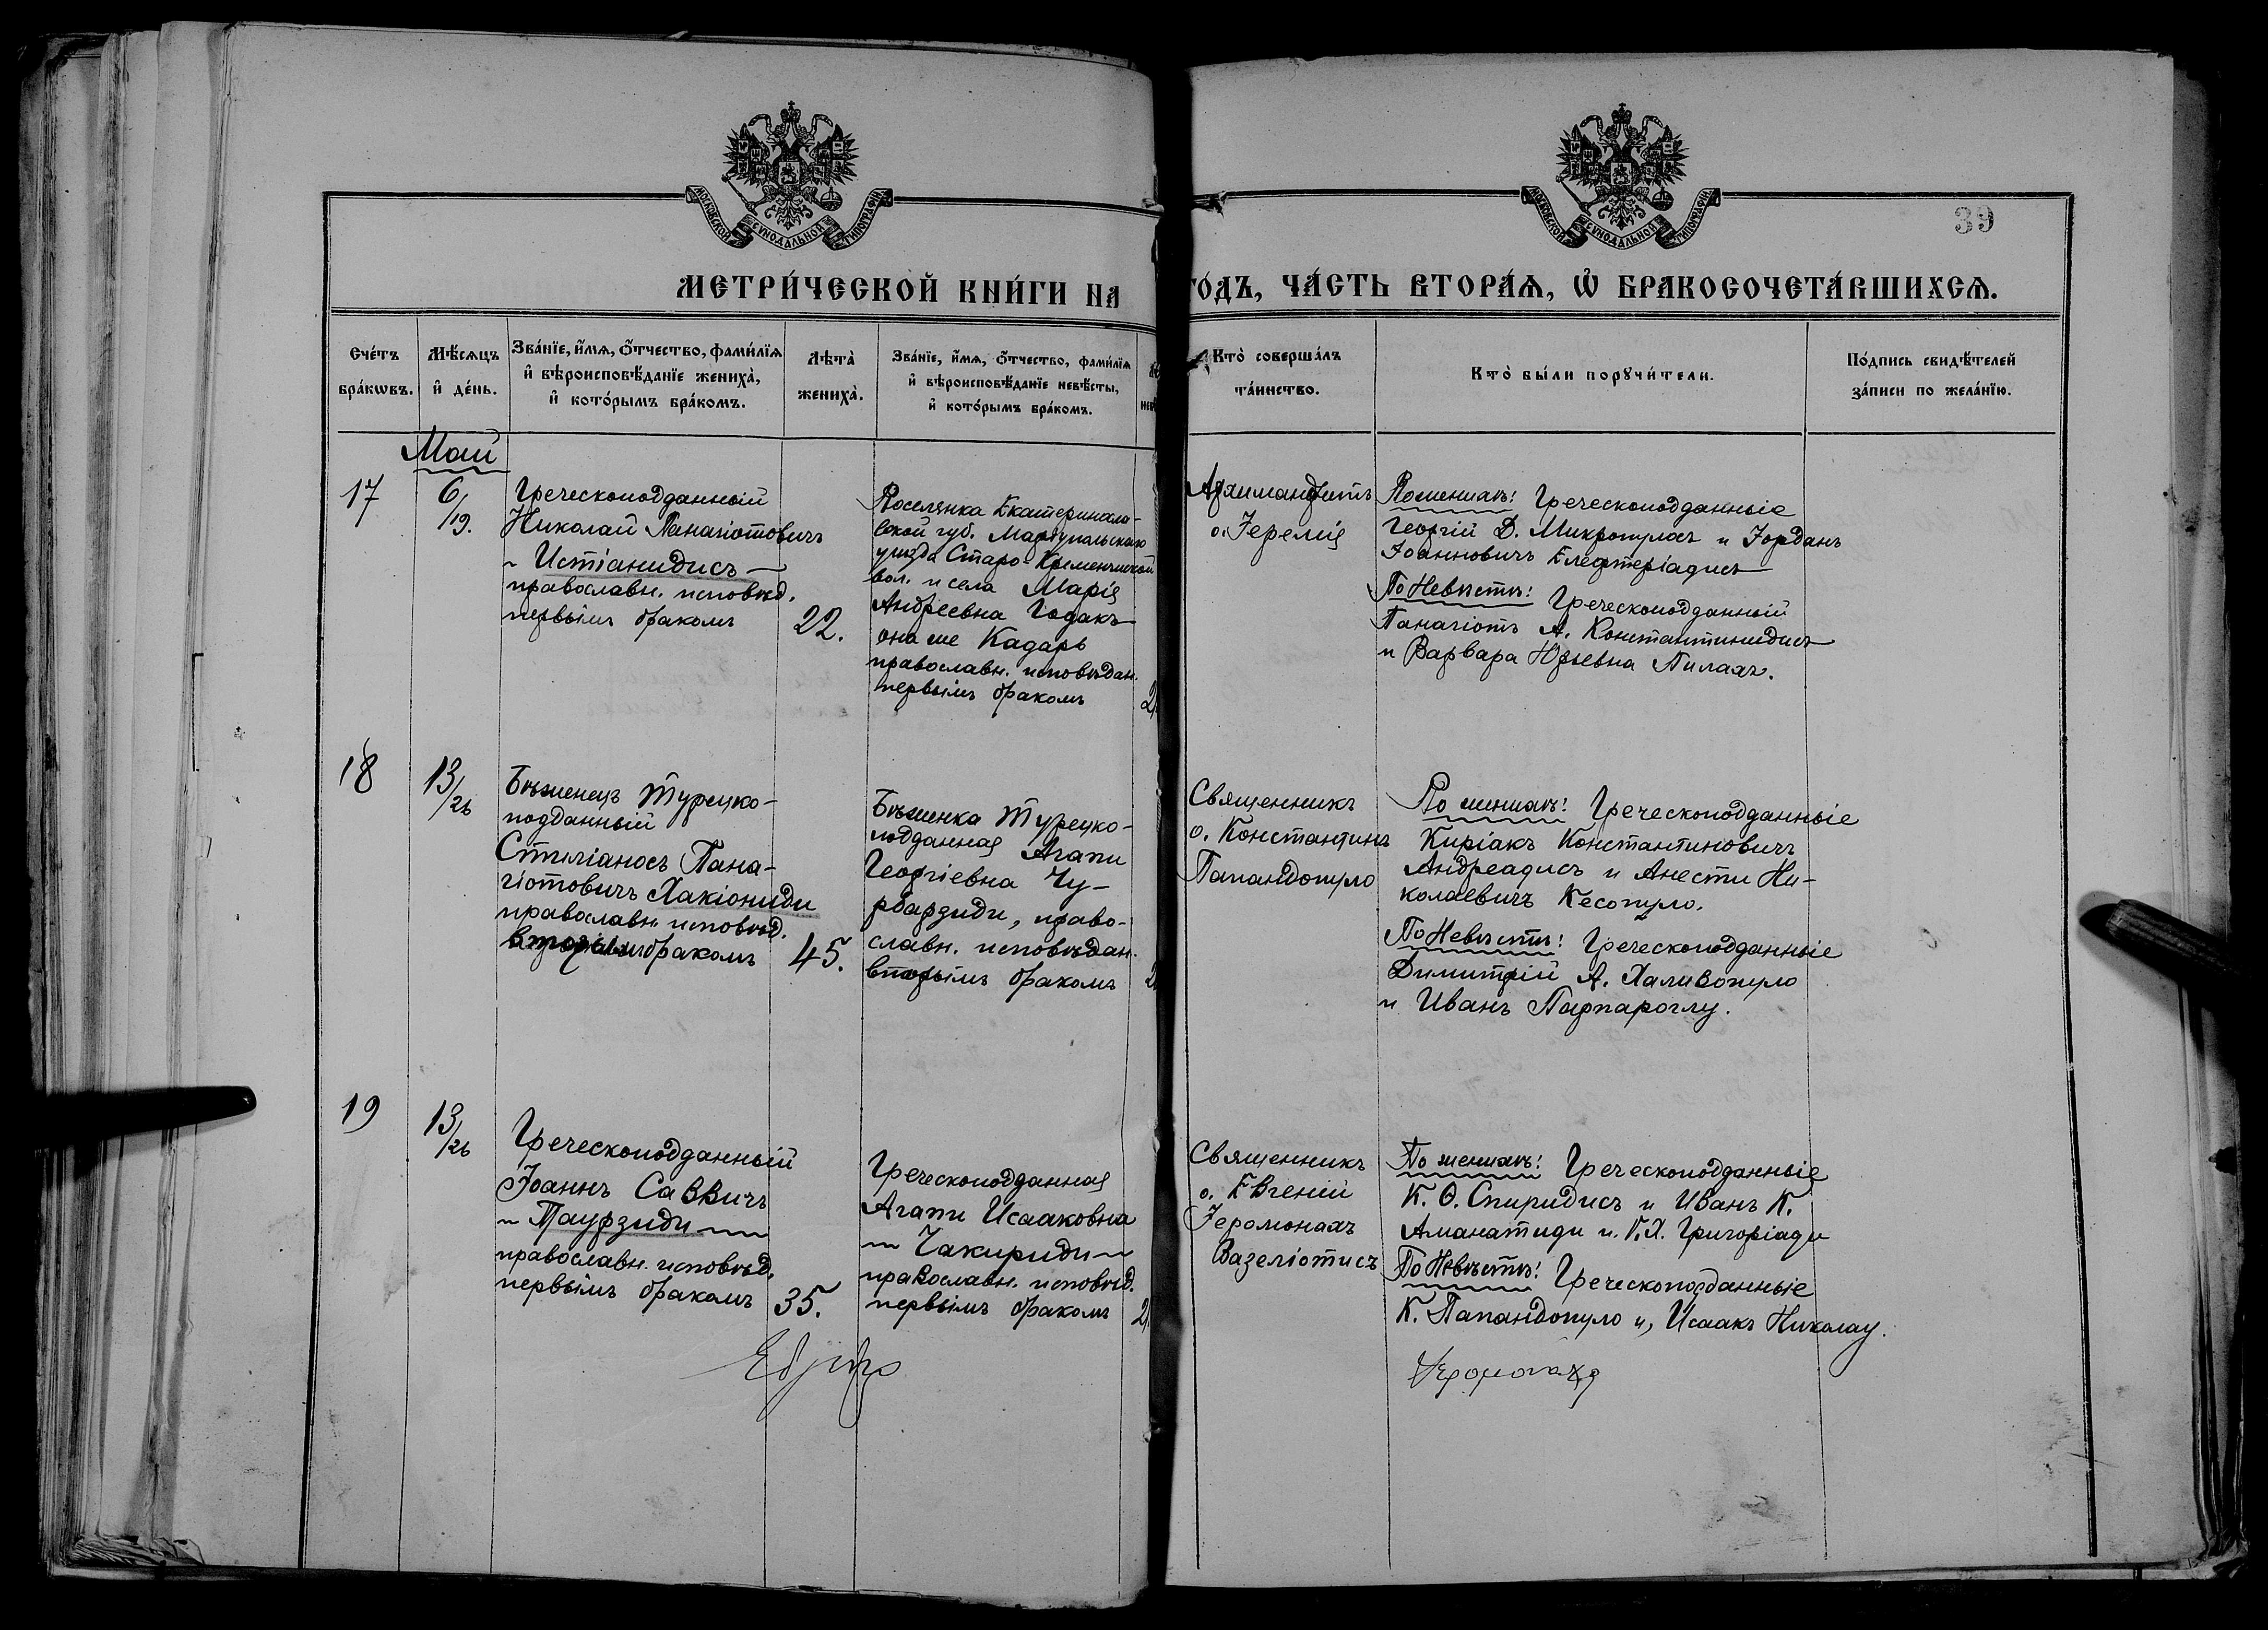 МОСКОВСКОЙ СУНОДАЛЬНОЙ ТИПОГРАФІИ
МОСКОВСКОЙ СУНОДАЛЬНОЙ ТИПОГРАФІИ
39
МЕТРИ́ЧЕСКОЙ КНИ́ГИ НА
ГО́ДЪ, ЧА́СТЬ ВТОРА́Ѧ, Ѡ҆ БРАКОСОЧЕТА́ВШИХСѦ.
Сче́тъ
бра́кѡвъ.
Мѣ́сѧцъ
и҆ де́нь.
Зва́нїе, и҆́мѧ, ѻ҆́тчество, фами́лїѧ
и҆ вѣроисповѣ́данїе жениха̀,
и҆ кото́рымъ бра́комъ.
Лѣта̀
жениха̀.
Зва́нїе, и҆́мѧ, ѻ҆́тчество, фами́лїѧ
и҆ вѣроисповѣ́данїе невѣ́сты,
и҆ кото́рымъ бра́комъ.
Кто̀ соверша́лъ
та́инство.
Кто̀ бы́ли порꙋчи́тели.
По́дпись свидѣ́телей
за́писи по жела́нїю.
Май
17
6/19.
Греческоподданный
Николай Панагіотовичъ
Истіанидисъ
православн. исповѣд.
первымъ бракомъ
22.
Поселянка Екатеринасла-
вской губ. Маріупольскаго
уѣзда Старо-Кременчикской
вол. и села Марія
Андреевна Годакъ
она же Кадаръ
православн. исповѣдан.
первымъ бракомъ
Архимандритъ
о. Іеремія
По женихѣ: Греческоподданные
Георгій Д. Микропулосъ и Іорданъ
Іоанновичъ Елефтеріадисъ
По Невѣстѣ: Греческоподданный
Панагіотъ А. Константинидисъ
и Варвара Юрьевна Пилахъ.
18
13/26
Бѣженецъ Турецко-
подданный
Стиліаносъ Пана-
гіотовичъ Хакіониди
православн. исповѣд.
вторымъ бракомъ
45.
Бѣженка Турецко-
подданная Агапи
Георгіевна Чу-
рбарзиди, право-
славн. исповѣдан.
вторымъ бракомъ
Священникъ
о. Константинъ
Папандопуло
По женихѣ: Греческоподданные
Киріакъ Константиновичъ
Андреадисъ и Анести Ни-
колаевичъ Кесопуло.
По Невѣстѣ: Греческоподданные
Димитрій А. Халивопуло
и Иванъ Парпароглу.
19
13/26
Греческоподданный
Іоаннъ Саввичъ
Таурзиди
православн. исповѣд.
первымъ бракомъ
35.
Греческоподданная
Агапи Исааковна
Чакириди
православн. исповѣд.
первымъ бракомъ
Священникъ
о. Евгеній
Іеромонахъ
Вазеліотисъ
По женихѣ: Греческоподданные
К. Ѳ. Спиридисъ и Иванъ К.
Аманатиди и. Г. Х. Григоріади
По Невѣстѣ: Греческоподданные
К. Папандопуло и, Исаакъ Николау.